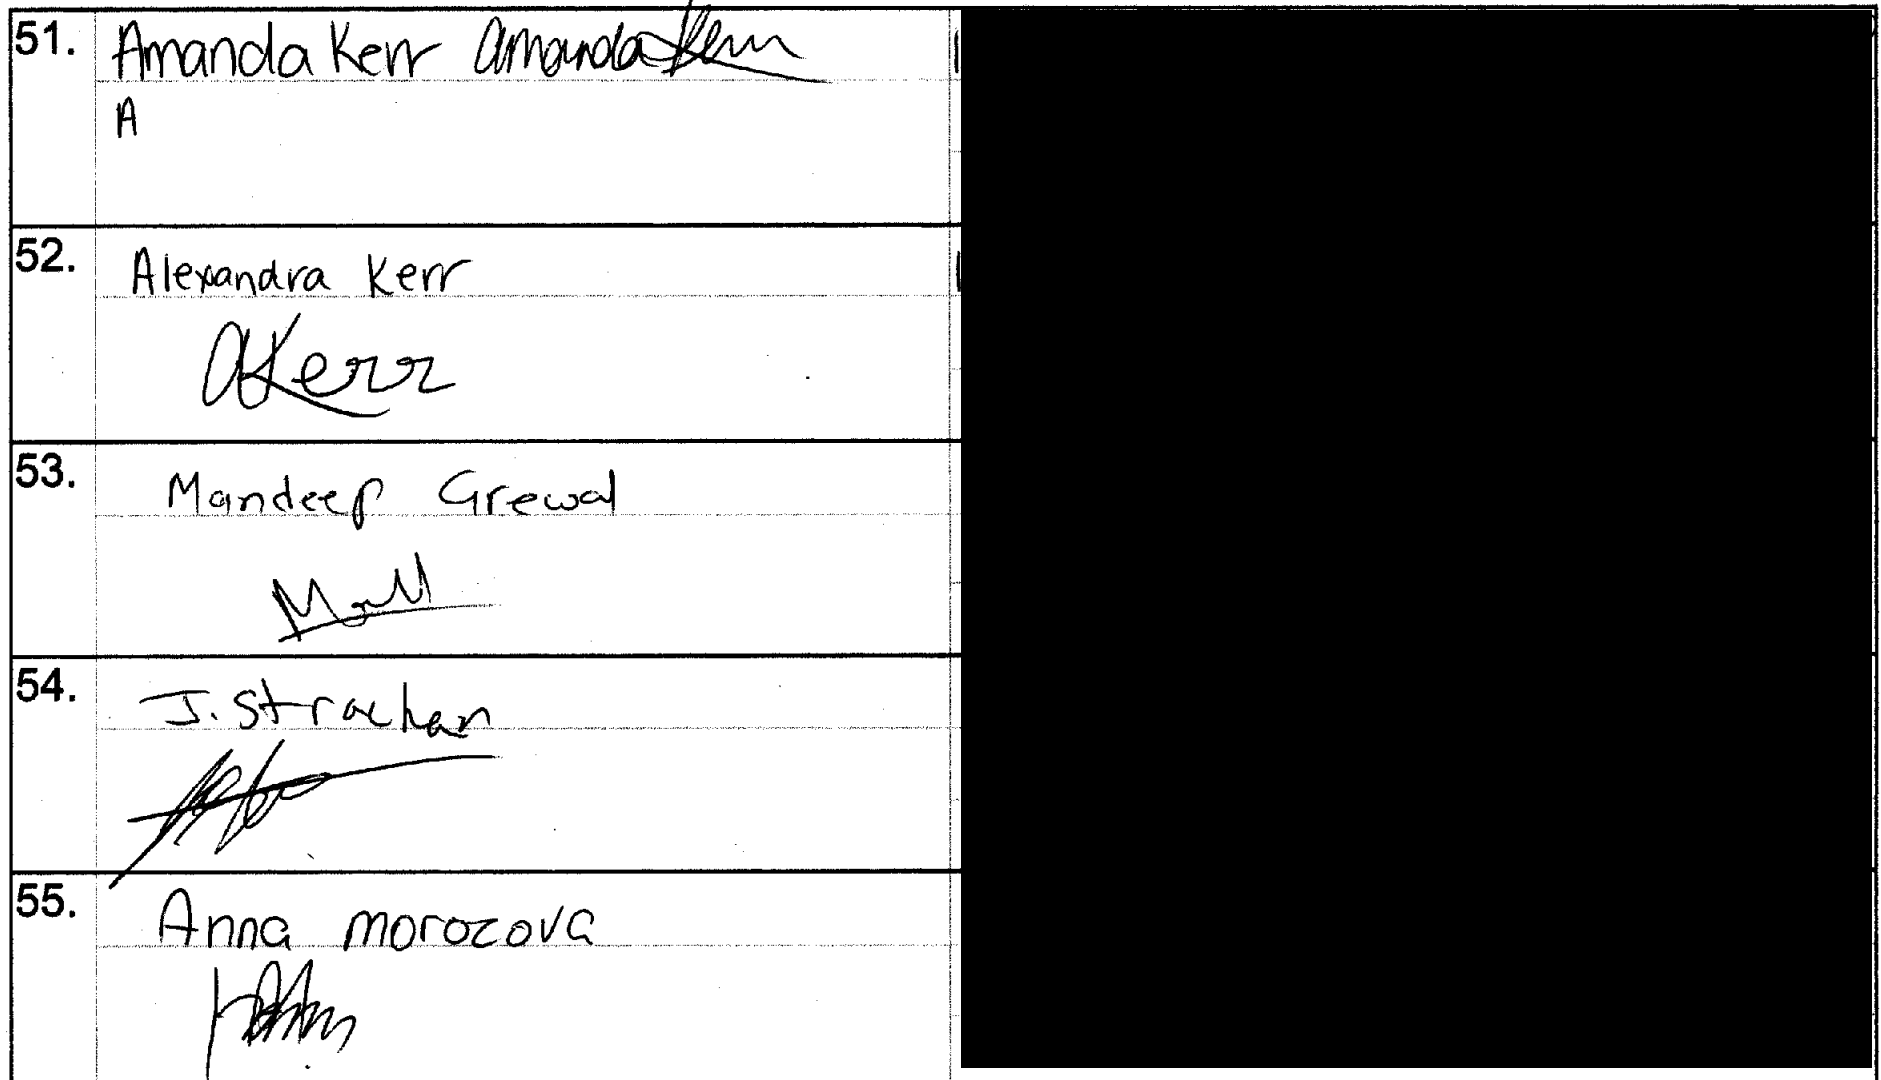 51. Amanda Kerr Amanda Kerr
A
52. Alexandra Kerr
AKerr
53. Mandeep Grewal
54. J. Strachan
55. Anna morozova